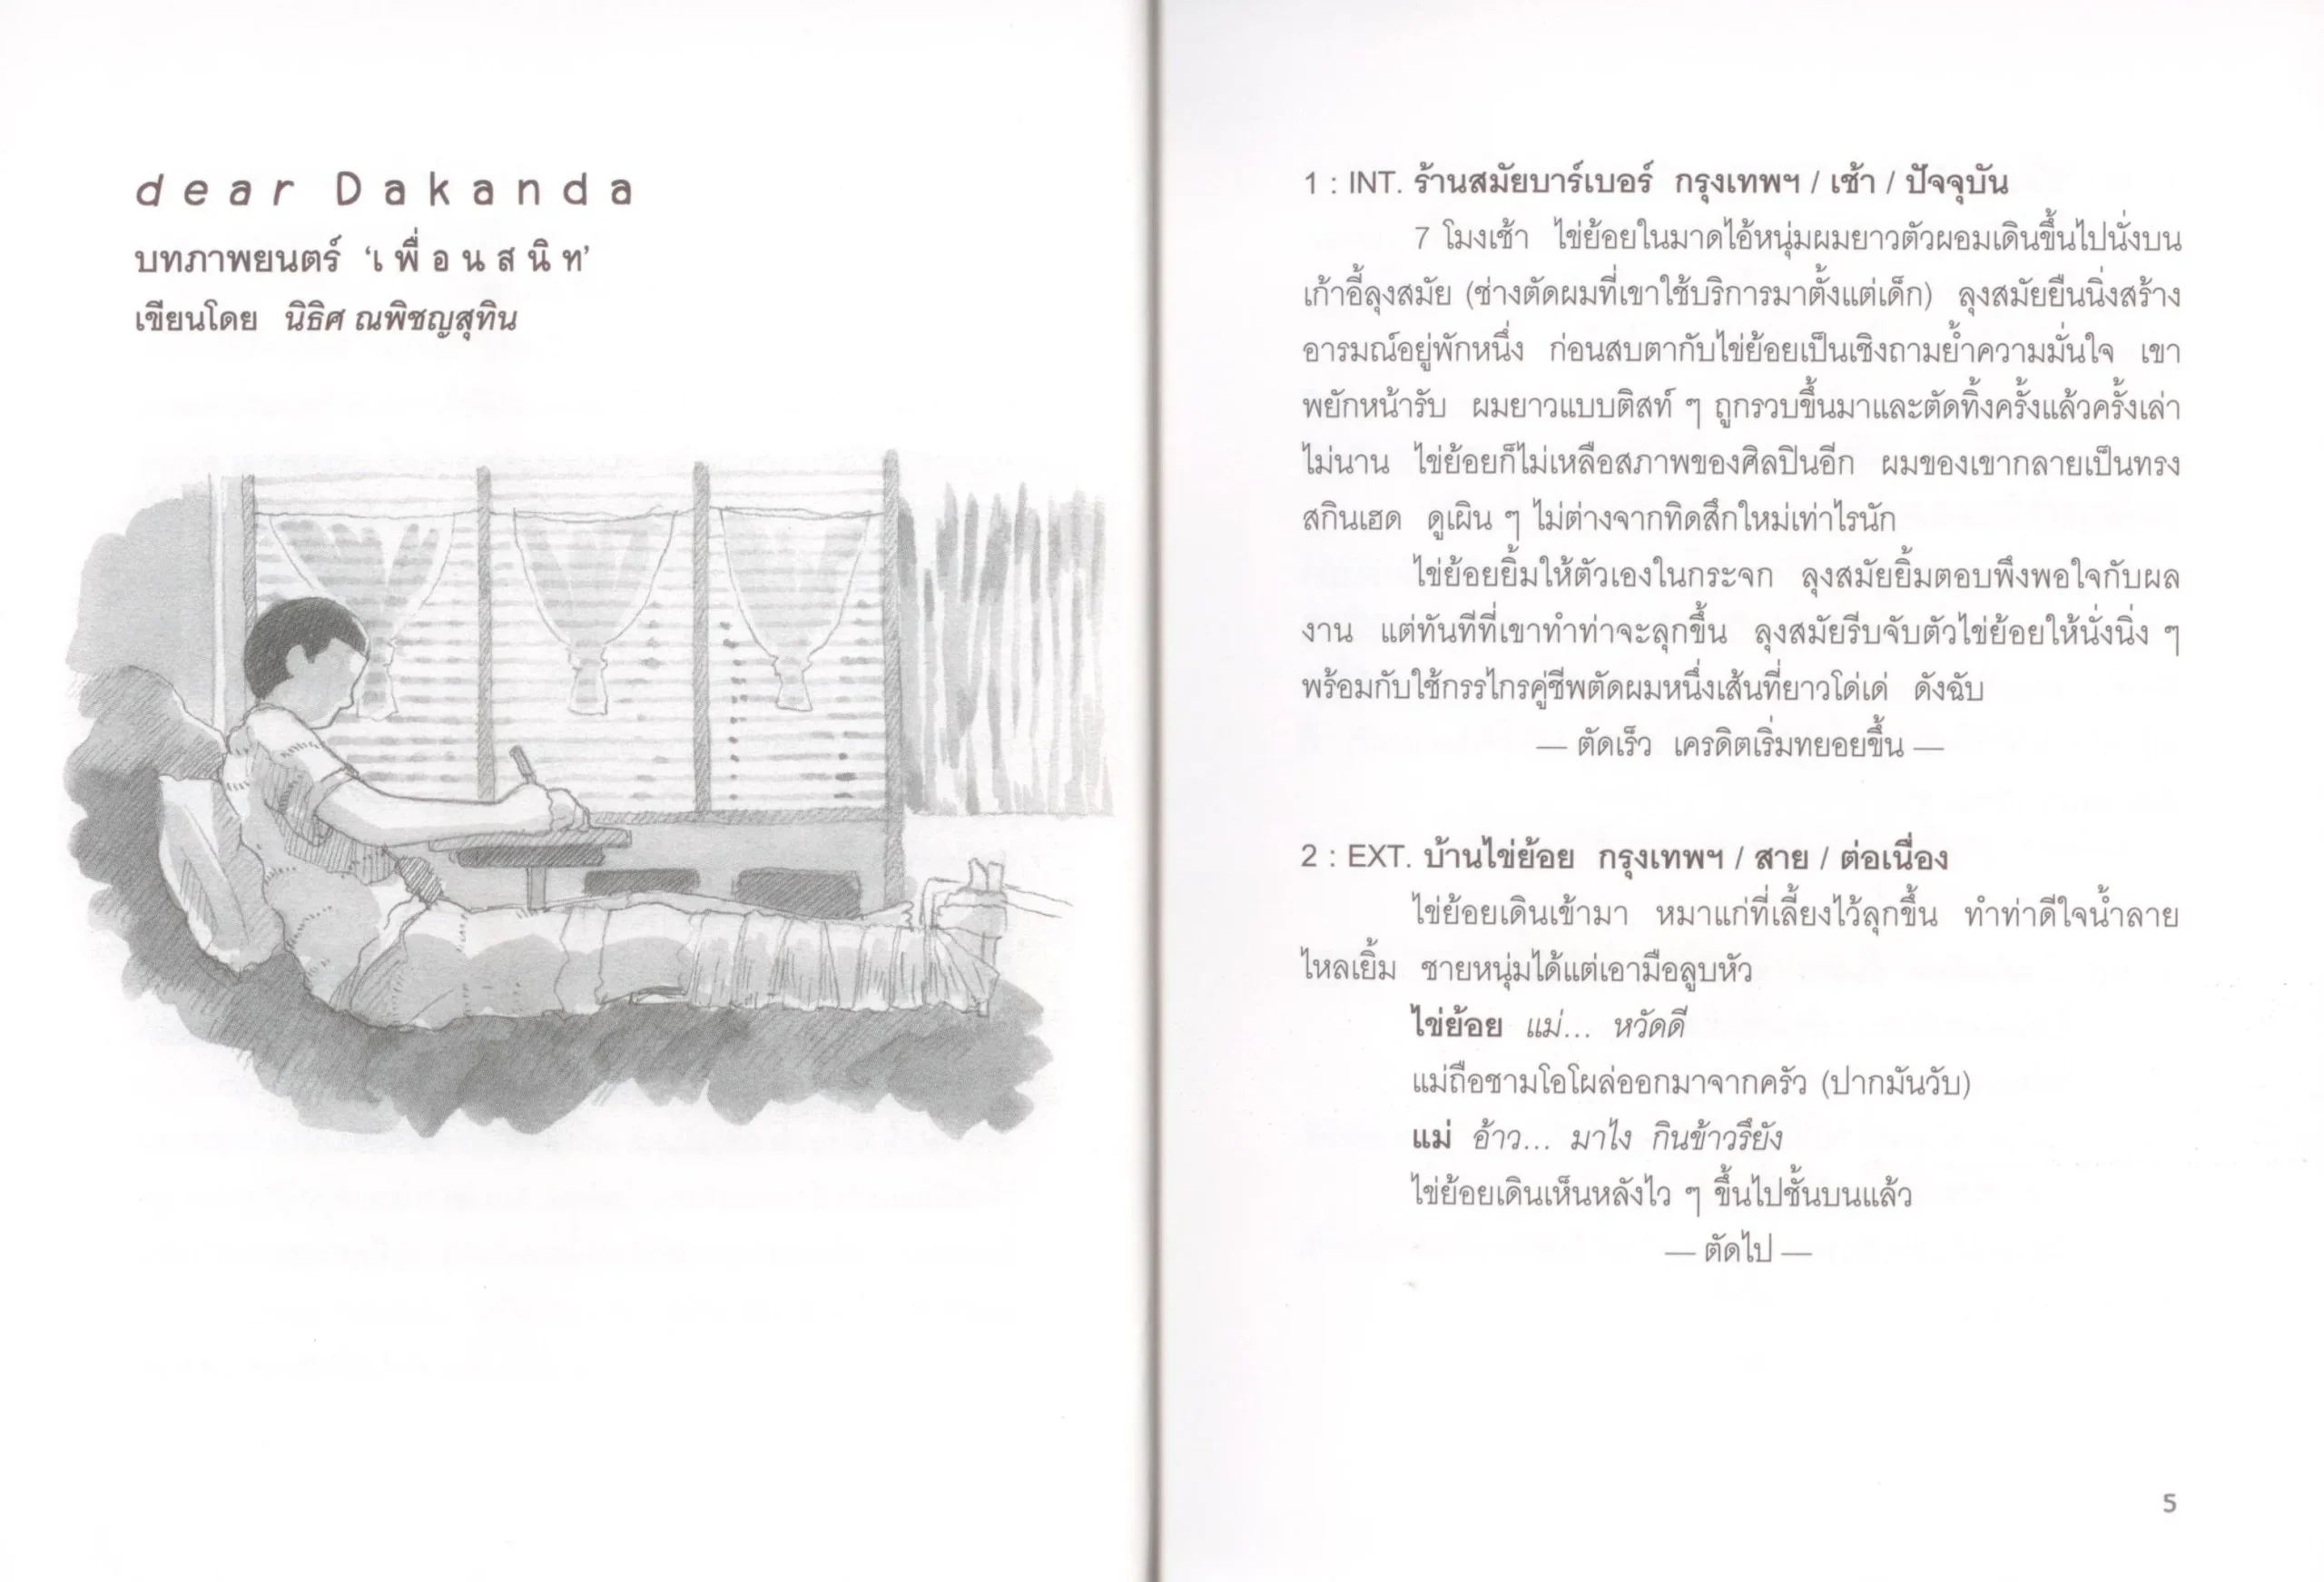 dear Dakanda
บทภาพยนตร์ ‘เพื่อนสนิท’
เขียนโดย นิธิศ ณพิชญสุทิน
1 : INT. ร้านสมัยบาร์เบอร์ กรุงเทพฯ / เช้า / ปัจจุบัน
7 โมงเช้า ไข่ย้อยในมาดไอ้หนุ่มผมยาวตัวผอมเดินขึ้นไปนั่งบน
เก้าอี้ลุงสมัย (ช่างตัดผมที่เขาใช้บริการมาตั้งแต่เด็ก) ลุงสมัยยืนนิ่งสร้าง
อารมณ์อยู่พักหนึ่ง ก่อนสบตากับไข่ย้อยเป็นเชิงถามย้ำความมั่นใจ เขา
พยักหน้ารับ ผมยาวแบบติสท์ ๆ ถูกรวบขึ้นมาและตัดทิ้งครั้งแล้วครั้งเล่า
ไม่นาน ไข่ย้อยก็ไม่เหลือสภาพของศิลปินอีก ผมของเขากลายเป็นทรง
สกินเฮด ดูเผิน ๆ ไม่ต่างจากทิดสึกใหม่เท่าไรนัก
ไข่ย้อยยิ้มให้ตัวเองในกระจก ลุงสมัยยิ้มตอบพึงพอใจกับผล
งาน แต่ทันทีที่เขาทำท่าจะลุกขึ้น ลุงสมัยรีบจับตัวไข่ย้อยให้นั่งนิ่ง ๆ
พร้อมกับใช้กรรไกรคู่ชีพตัดผมหนึ่งเส้นที่ยาวโด่เด่ ดังฉับ
— ตัดเร็ว เครดิตเริ่มทยอยขึ้น —
2 : EXT. บ้านไข่ย้อย กรุงเทพฯ / สาย / ต่อเนื่อง
ไข่ย้อยเดินเข้ามา หมาแก่ที่เลี้ยงไว้ลุกขึ้น ทำท่าดีใจน้ำลาย
ไหลเยิ้ม ชายหนุ่มได้แต่เอามือลูบหัว
ไข่ย้อย แม่... หวัดดี
แม่ถือชามโอโผล่ออกมาจากครัว (ปากมันวับ)
แม่ อ้าว... มาไง กินข้าวรึยัง
ไข่ย้อยเดินเห็นหลังไว ๆ ขึ้นไปชั้นบนแล้ว
— ตัดไป —
5